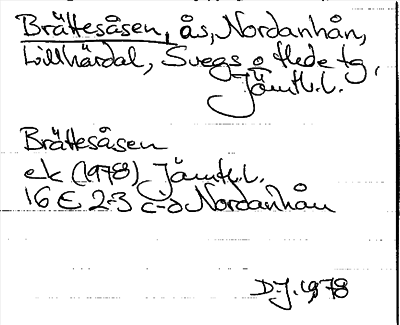 Brättesåsen, ås, Nordanhån,
Lillhärdal, Svegs o Hede tg,
Jämtl.l.
Brättesåsen
ek (1978) Jämtl.l.
16 E 2-3 c-d Nordanhån
D.J. 1978